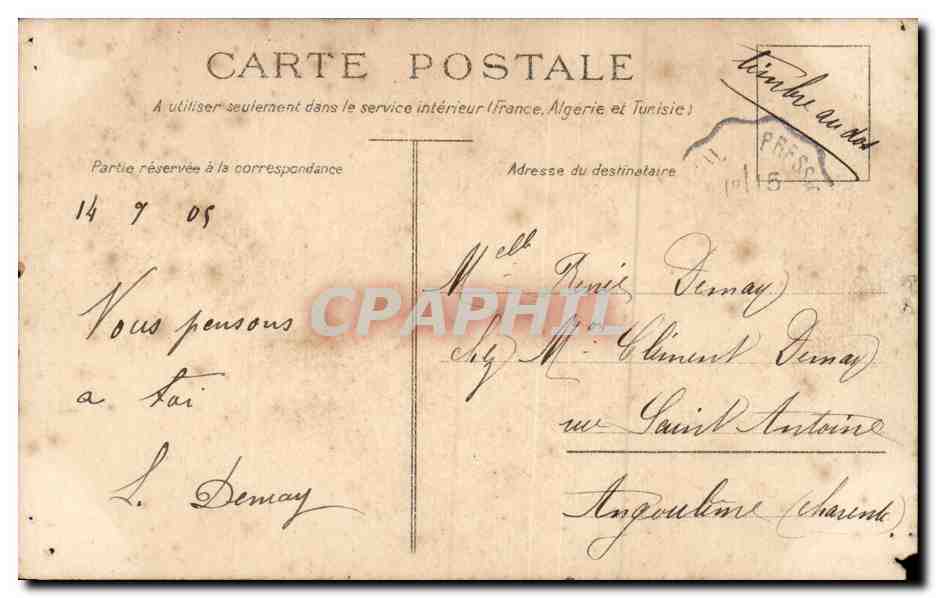 CARTE POSTALE
A utiliser seulement dans le service intérieur (France, Algérie et Tunisie)
timbre au dos
PRESS
15
Partie réservée à la correspondance
Adresse du destinataire
14 9 05
Vous pensons
a toi
L. Demay
Melle René Demay
chez Mr Clément Demay
rue Saint Antoine
Angoulême (Charente)
CPAPHIL